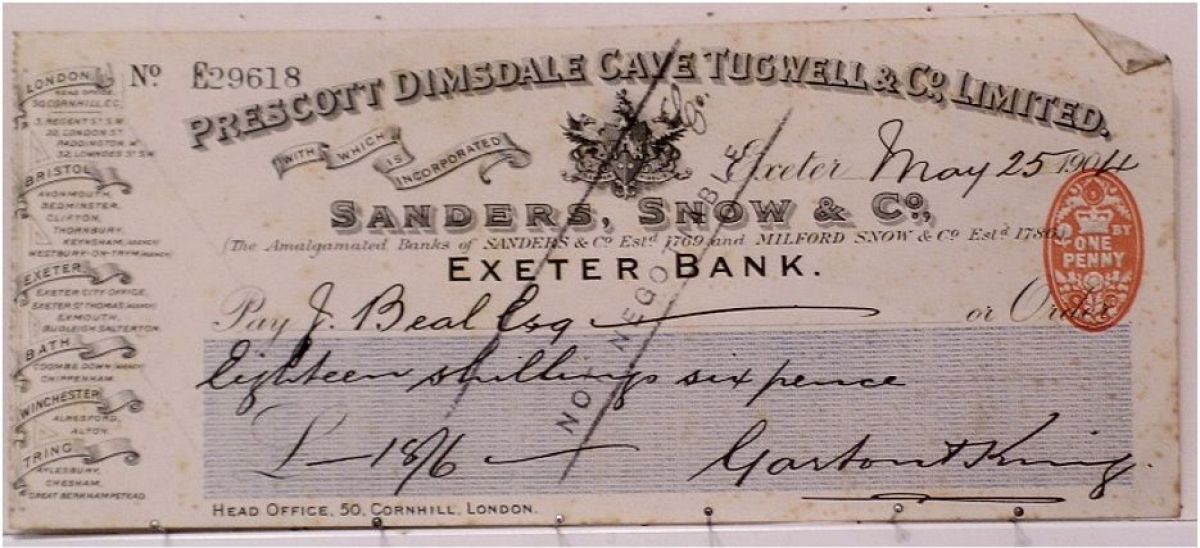 Nº E29618
PRESCOTT DIMSDALE CAVE TUGWELL & Cº, LIMITED.
WITH WHICH IS INCORPORATED
& Co.
Exeter May 25 1904
SANDERS, SNOW & Cº,
(The Amalgamated Banks of SANDERS & Cº Estd 1769 and MILFORD SNOW & Cº Estd 1786.)
EXETER BANK.
ONE PENNY
Pay J. Beal Esq or Order
Eighteen shillings six pence
£ — 18/6 —
Garton & King.
NOT NEGOTIABLE
HEAD OFFICE, 50, CORNHILL, LONDON.
LONDON
HEAD OFFICE
50 CORNHILL E.C.
3, REGENT ST S.W.
20, LONDON ST
PADDINGTON W.
32, LOWNDES ST S.W.
BRISTOL
AVONMOUTH,
BEDMINSTER,
CLIFTON,
THORNBURY,
KEYNSHAM, (AGENCY)
WESTBURY-ON-TRYM (AGENCY)
EXETER
EXETER CITY OFFICE,
EXETER ST THOMAS (AGENCY)
EXMOUTH,
BUDLEIGH SALTERTON.
BATH
COOMBE DOWN (AGENCY)
CHIPPENHAM.
WINCHESTER
ALRESFORD,
ALTON.
TRING
AYLESBURY,
CHESHAM,
GREAT BERKHAMPSTEAD.